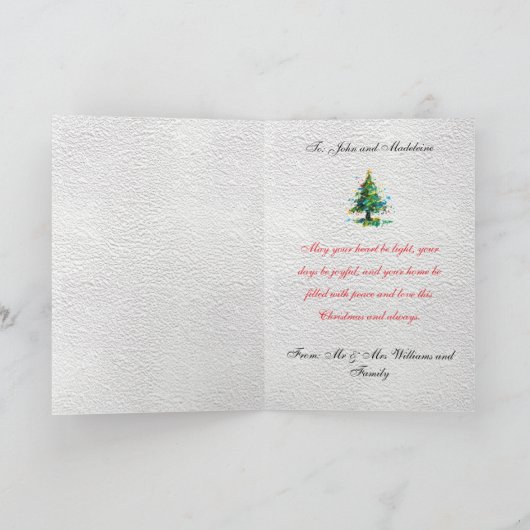 To: John and Madeleine
May your heart be light, your
days be joyful, and your home be
filled with peace and love this
Christmas and always.
From: Mr & Mrs Williams and
Family